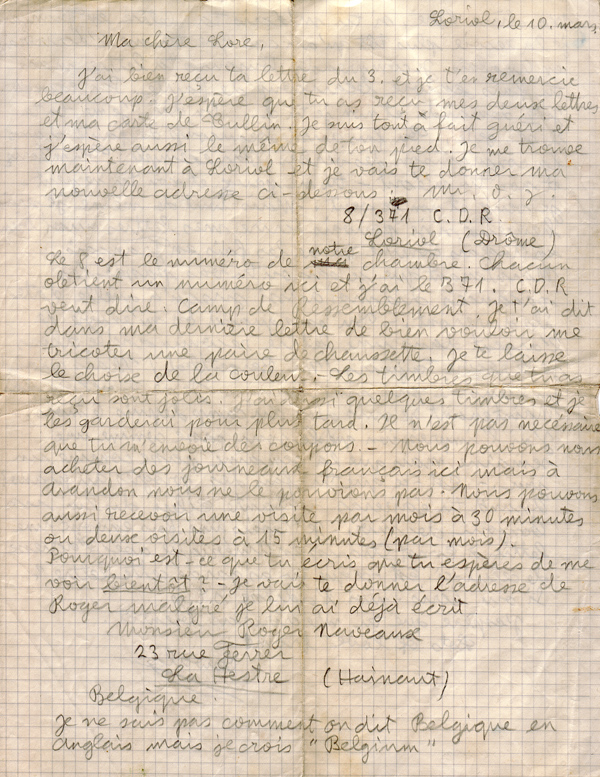 Loriol, le 10. mars
Ma chère Lore,
J'ai bien reçu ta lettre du 3. et je t'en remercie
beaucoup. J'espère que tu as reçu mes deux lettres
et ma carte de Cullin. Je suis tout à fait guéri et
j'espère aussi le même de ton pied. Je me trouve
maintenant à Loriol et je vais te donner ma
nouvelle adresse ci-dessous :
8/371 C.D.R.
Loriol (Drôme)
Le 8 est le numéro de notre chambre. Chacun
obtient un numéro ici et j'ai le 371. C.D.R
veut dire. Camp de Ressemblement. Je t'ai dit
dans ma dernière lettre de bien vouloir me
tricoter une paire de chaussette. Je te laisse
le choise de la couleur. - Les timbres que tu as
reçu sont jolis. J'ai aussi quelques timbres et je
les garderai pour plus tard. Il n'est pas necessaire
que tu m'envoie des coupons. - Nous pouvons nous
acheter des journeaux français ici mais à
Avandon nous ne le pouvions pas. Nous pouvons
aussi recevoir une visite par mois à 30 minutes
ou deux visites à 15 minutes (par mois).
Pourquoi est-ce que tu écris que tu espères de me
voir bientôt? - Je vais te donner l'adresse de
Roger malgré je lui ai déjà écrit
Monsieur Roger Naveaux
23 rue Ferrer
La Hestre (Hainaut)
Belgique.
Je ne sais pas comment on dit Belgique en
anglais mais je crois "Belginm"